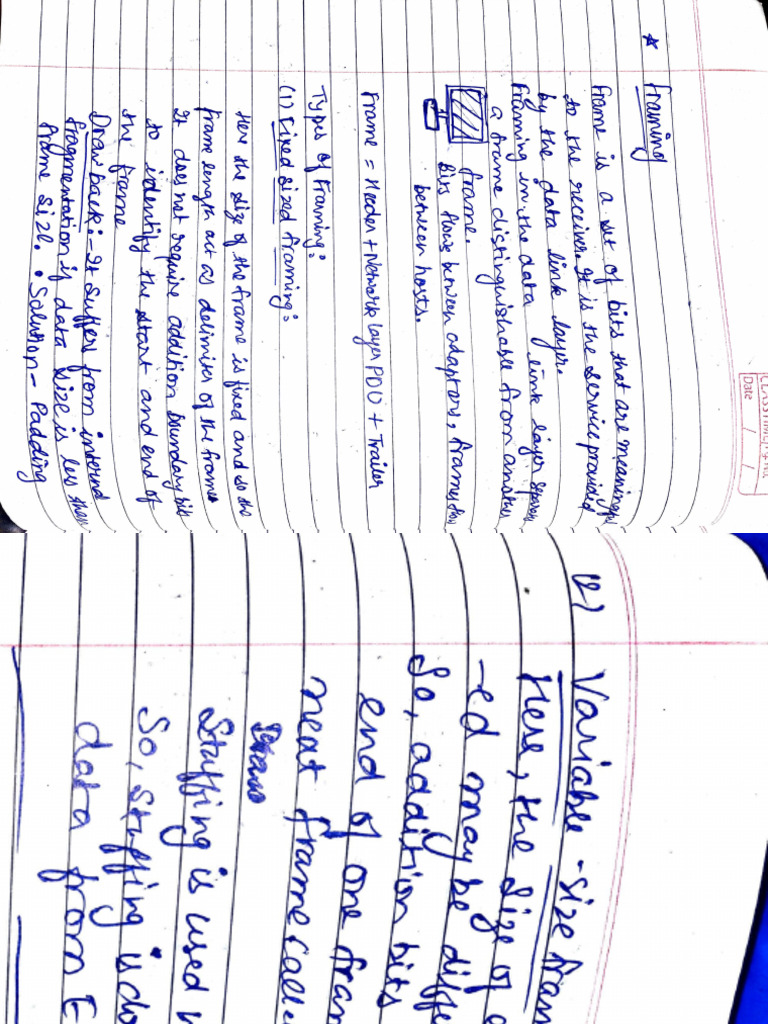 Date / /
* Framing
Frame is a set of bits that are meaningful
to the receiver. It is the service provided
by the data link layer.
Framing in the data link layer
a frame distinguishable from another
frame.
Bits flows between adaptors, frames
between hosts.
Frame = Header + Network layer PDU + Trailer
Types of Framing:
(1) Fixed sized framing:
Here the size of the frame is fixed and so the
frame length act as delimiter of the frame
It does not require addition boundary bits
to identify the start and end of
the frame
Drawback:- It suffers from internal
fragmentation if data size is less than
frame size. • Solution - Padding
(2) Variable-size fram
Here, the size of
-ed may be diffe
So, addition bits
end of one fram
next frame calle
Stuffing is used
So, stuffing is do
data from E